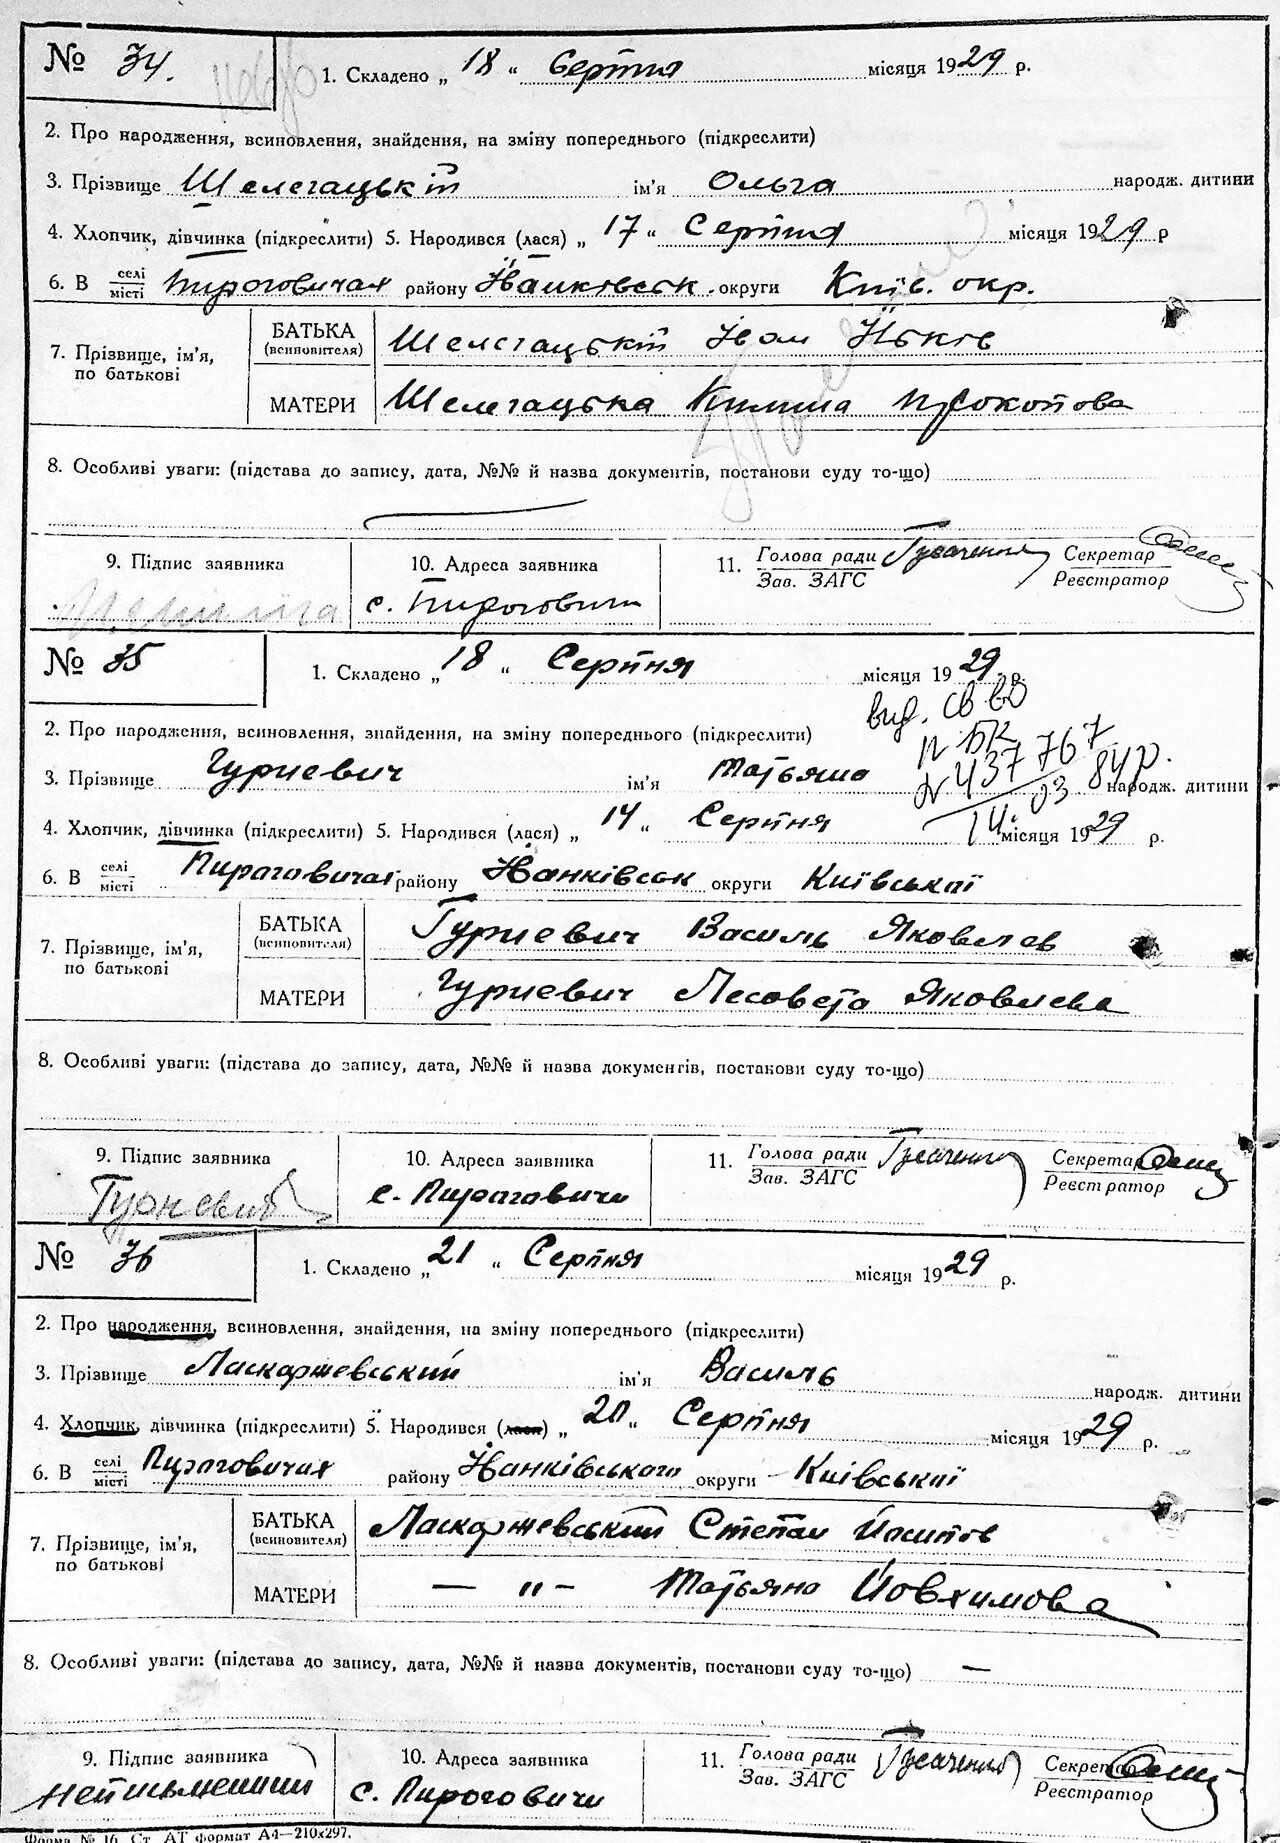 № 34. 1. Складено „ 18 “ Серпня місяця 1929 р.
2. Про народження, всиновлення, знайдення, на зміну попереднього (підкреслити)
3. Прізвище Шелегацькій ім'я Ольга народж. дитини
4. Хлопчик, дівчинка (підкреслити) 5. Народився (лася) „ 17 “ Серпня місяця 1929 р
6. В селі місті Пироговичах району Іванківськ. округи Київ. окр.
7. Прізвище, ім'я, по батькові БАТЬКА (всиновителя) Шелегацькій Іван
МАТЕРИ Шелегацька Прокопова
8. Особливі уваги: (підстава до запису, дата, №№ й назва документів, постанови суду то-що)
9. Підпис заявника 10. Адреса заявника 11. Голова ради Секретар
Зав. ЗАГС Реєстратор
с. Пироговичи
№ 35 1. Складено „ 18 “ Серпня місяця 1929 р.
вид. св во
2. Про народження, всиновлення, знайдення, на зміну попереднього (підкреслити)
II БК
№ 437767
3. Прізвище Гуриевич ім'я Татьяна народж. дитини
14. 03 84 р.
4. Хлопчик, дівчинка (підкреслити) 5. Народився (лася) „ 14 “ Серпня місяця 1929 р.
6. В селі місті Пираговичах району Іванківськ округи Київської
7. Прізвище, ім'я, по батькові БАТЬКА (всиновителя) Гуриевич Василь Яковлев
МАТЕРИ Гуриевич Лесовета Яковлева
8. Особливі уваги: (підстава до запису, дата, №№ й назва документів, постанови суду то-що)
9. Підпис заявника 10. Адреса заявника 11. Голова ради Секретар
Зав. ЗАГС Реєстратор
Гурневич с. Пираговичи
№ 36 1. Складено „ 21 “ Серпня місяця 1929 р.
2. Про народження, всиновлення, знайдення, на зміну попереднього (підкреслити)
3. Прізвище Ласкаржевський ім'я Василь народж. дитини
4. Хлопчик, дівчинка (підкреслити) 5. Народився (лася) „ 20 “ Серпня місяця 1929 р.
6. В селі місті Пираговичах району Іванківського округи Київської
7. Прізвище, ім'я, по батькові БАТЬКА (всиновителя) Ласкаржевський Степан Йосипов
МАТЕРИ — " — Татьяна Йовхимова
8. Особливі уваги: (підстава до запису, дата, №№ й назва документів, постанови суду то-що) —
9. Підпис заявника 10. Адреса заявника 11. Голова ради Секретар
Зав. ЗАГС Реєстратор
Неписьменний с. Пироговичи
Форма № 16. Ст. АТ формат А4—210x297.